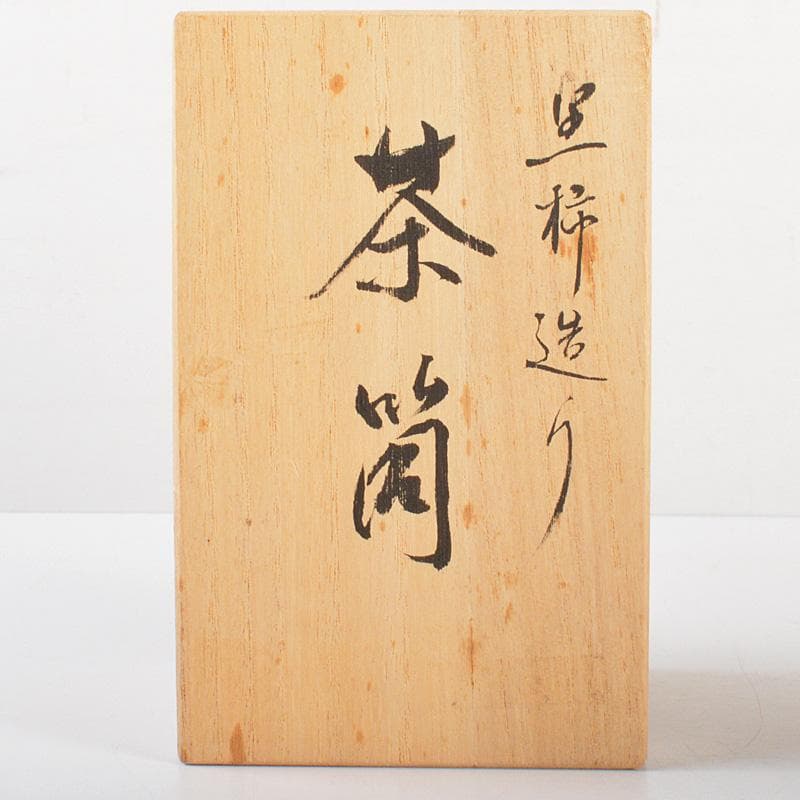 黒柿造り
茶筒